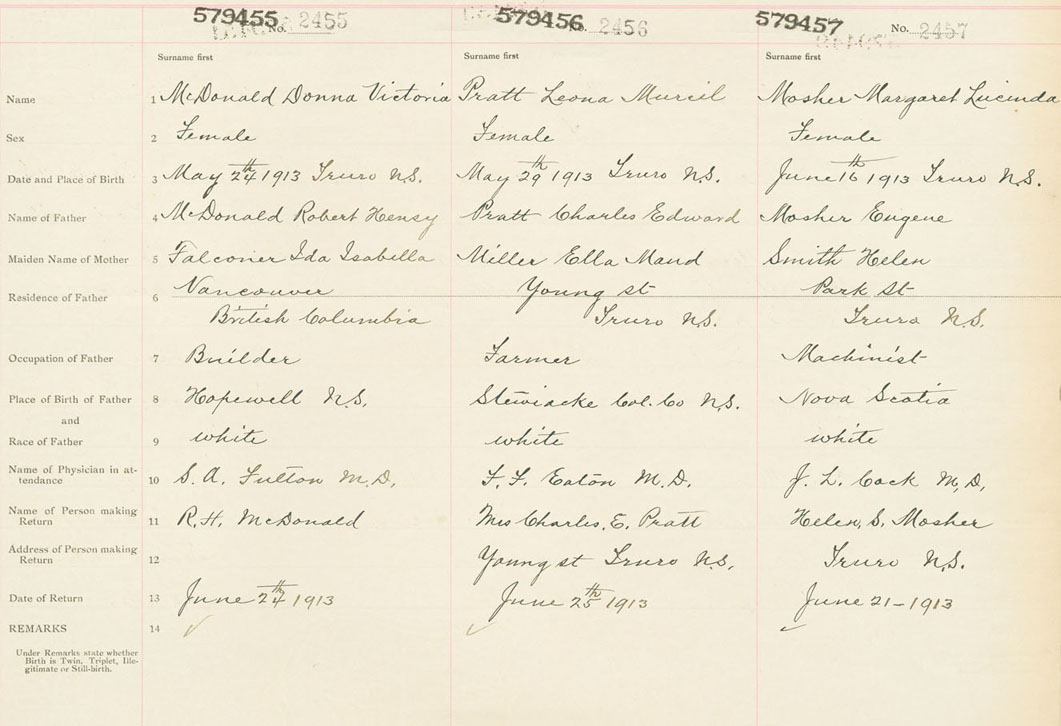 579455 No. 2455 579456 No. 2456 579457 No. 2457
Surname first Surname first Surname first
Name 1 McDonald Donna Victoria Pratt Leona Murcil Mosher Margaret Lucinda
Sex 2 Female Female Female
Date and Place of Birth 3 May 24th 1913 Truro N.S. May 29th 1913 Truro N.S. June 16th 1913 Truro N.S.
Name of Father 4 McDonald Robert Henry Pratt Charles Edward Mosher Eugene
Maiden Name of Mother 5 Falconer Ida Isabella Miller Ella Maud Smith Helen
Residence of Father 6 Vancouver Young st Park St
British Columbia Truro N.S. Truro N.S.
Occupation of Father 7 Builder Farmer Machinist
Place of Birth of Father 8 Hopewell N.S. Stewiacke Col. Co N.S. Nova Scotia
and
Race of Father 9 white white white
Name of Physician in at-
tendance 10 S. A. Fulton M.D. F. F. Eaton M.D. J. L. Cock M.D.
Name of Person making
Return 11 R. H. McDonald Mrs Charles. E. Pratt Helen, S. Mosher
Address of Person making
Return 12 Young st Truro N.S. Truro N.S.
Date of Return 13 June 24th 1913 June 25th 1913 June 21-1913
REMARKS 14
Under Remarks state whether
Birth is Twin, Triplet, Ille-
gitimate or Still-birth.